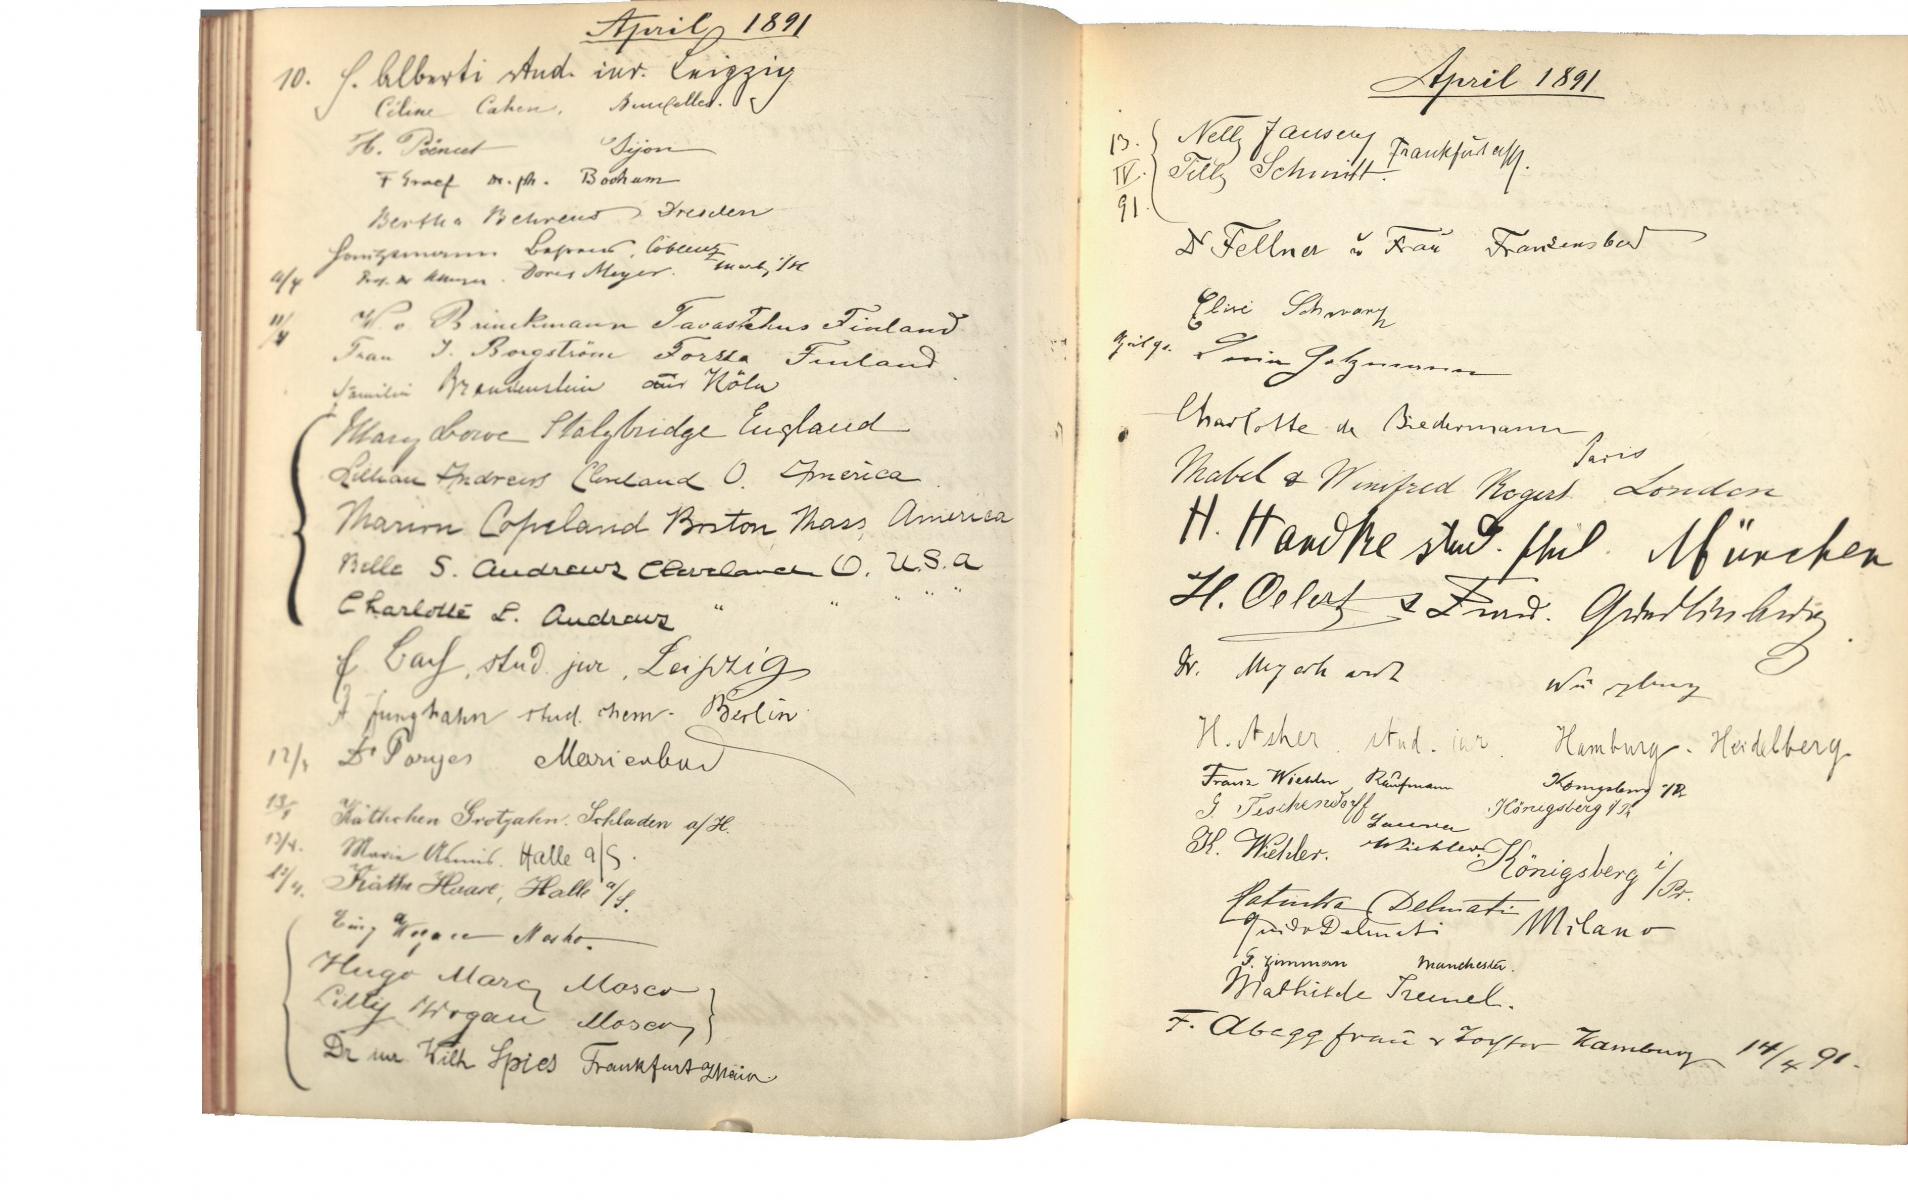 April 1891
10. H. Alberti stud. iur. Leipzig
Céline Cahen, Bruxelles.
H. Dijon
F Graef Dr. ph. Bochum
Bertha Behrens Dresden
Coblenz
Doris Meyer.
11/4 W. v Brinckmann Tavastehus Finland
Frau I. Borgström Forssa Finland
Familie Brandenstein aus Köln
Mary Lowe Stalybridge England
Lillian Andrews Cleveland O. America
Marion Copeland Boston Mass, America
Bella S. Andrews Cleveland O. U.S.A
Charlotte L. Andrews " " " " "
stud. jur, Leipzig
A Junghahn stud. chem. Berlin
12/4 Dr Porges Marienbad
13/4 Käthchen Grotjahn. Schladen a/H.
13/4. Marie Halle a/S.
13/4. Käthe Haase, Halle a/S.
Hugo Marc Moscou
Lilly Wogau Moscou
Dr iur Wilh Spies Frankfurt a/Main.
April 1891
13. IV. 91. Nelly Jansen Frankfurt a/M.
Tilly Schmidt.
Dr Fellner u Frau Franzensbad
Elise Schwarz
Charlotte de Biedermann
Paris
Mabel & Winifred Rogers London
H. Handke stud. phil. München
H. Oelert & Freund.
Dr. Würzburg
H. Asher. stud. iur. Hamburg - Heidelberg
Franz Wiehler Kaufmann Königsberg i/Pr
G Teschendorff Königsberg i/Pr
Laura
K. Wiehler. Wiehler. Königsberg i/Pr.
Delmati
Guido Delmati Milano
G. Zimmern Manchester.
Mathilde
F. Abegg frau & Tochter Hamburg 14/4 91.